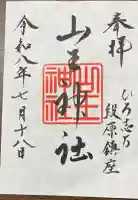 奉拝
ひろしま
段原鎮座
山王神社
山王神社
令和八年七月十八日